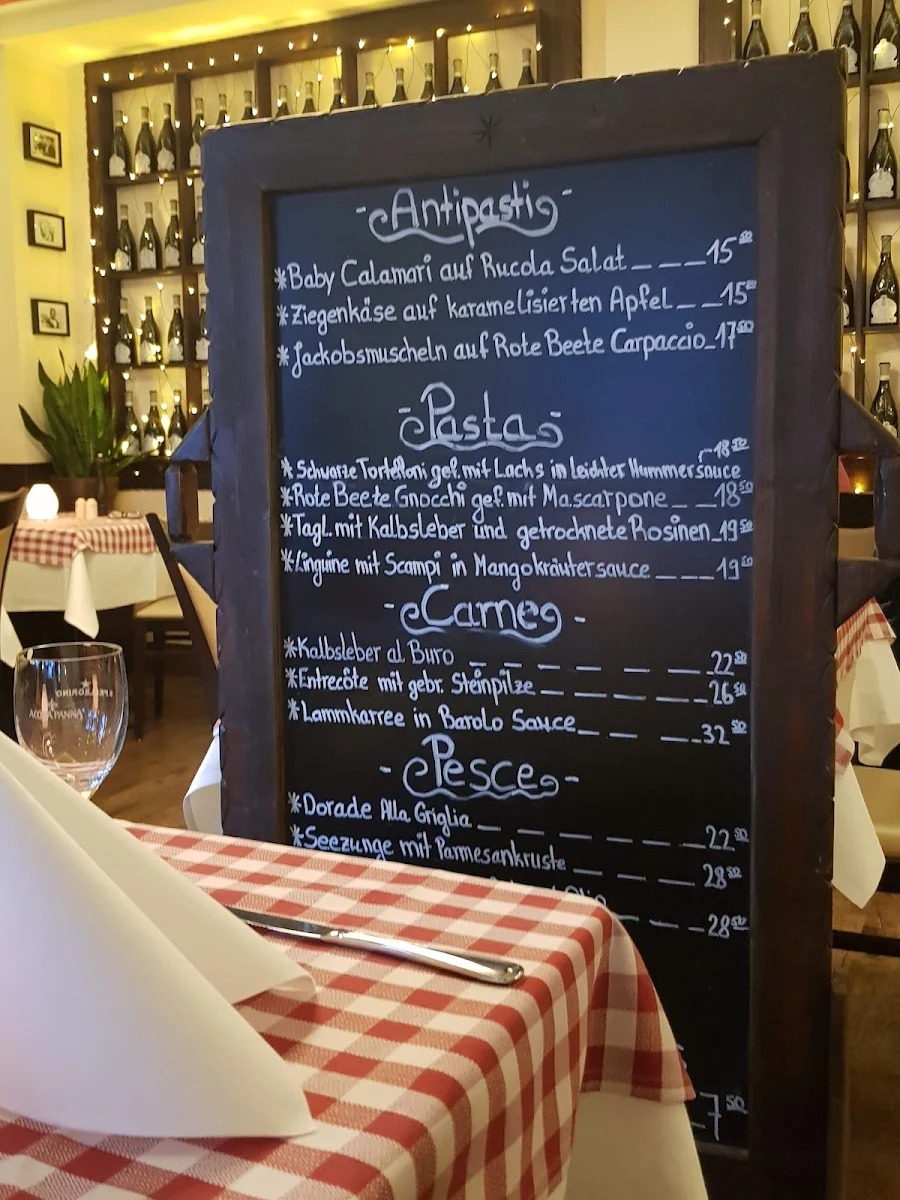 -Antipasti-
*Baby Calamari auf Rucola Salat_ _ _ _15⁵⁰
*Ziegenkäse auf karamelisierten Apfel_ _ _15⁵⁰
*Jackobsmuscheln auf Rote Beete Carpaccio_17⁵⁰
-Pasta-
*Schwarze Tortelloni gef. mit Lachs in leichter Hummersauce 18⁵⁰
*Rote Beete Gnocchi gef. mit Mascarpone_ _ _18⁵⁰
*Tagl. mit Kalbsleber und getrocknete Rosinen_19⁵⁰
*Linguine mit Scampi in Mangokräutersauce_ _ _ _19⁵⁰
-Carne-
*Kalbsleber al Buro _ _ _ _ _ _ _22⁵⁰
*Entrecôte mit gebr. Steinpilze_ _ _ _ _26⁵⁰
*Lammkarree in Barolo Sauce_ _ _ _32⁵⁰
-Pesce-
*Dorade Alla Griglia_ _ _ _ _ _22⁵⁰
*Seezunge mit Parmesankruste _ _ _28⁵⁰
_ _ _28⁵⁰
_7⁵⁰
S.PELLEGRINO
ACQUA PANNA